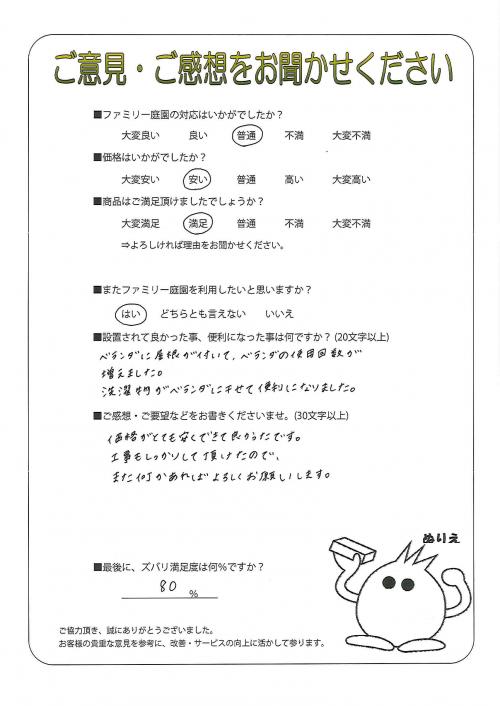 ご意見・ご感想をお聞かせください
■ファミリー庭園の対応はいかがでしたか？
大変良い 良い 普通 不満 大変不満
■価格はいかがでしたか？
大変安い 安い 普通 高い 大変高い
■商品はご満足頂けましたでしょうか？
大変満足 満足 普通 不満 大変不満
⇒よろしければ理由をお聞かせください。
■またファミリー庭園を利用したいと思いますか？
はい どちらとも言えない いいえ
■設置されて良かった事、便利になった事は何ですか？(20文字以上)
ベランダに屋根が付いて、ベランダの使用回数が
増えました。
洗濯物がベランダに干せて便利になりました。
■ご感想・ご要望などをお書きくださいませ。(30文字以上)
価格がとても安くできて良かったです。
工事もしっかりして頂けたので、
また何かあればよろしくお願いします。
ぬりえ
■最後に、ズバリ満足度は何%ですか？
80 %
ご協力頂き、誠にありがとうございました。
お客様の貴重な意見を参考に、改善・サービスの向上に活かして参ります。